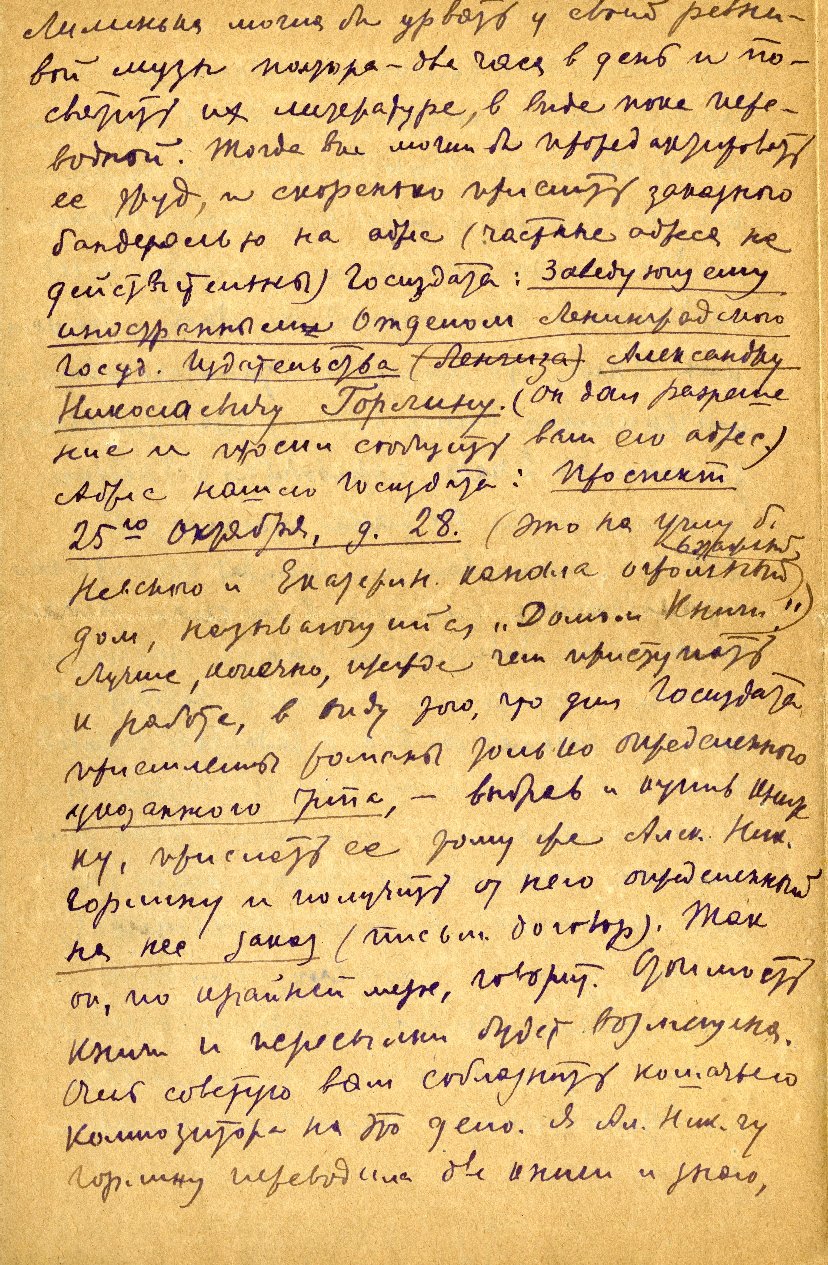 Лилинька могла бы урвать у своей ревни-
вой музы полтора-два часа в день и по-
святить их литературе, в виде пока пере-
водной. Тогда вы могли бы проредактировать
ее труд, и скоренько прислать заказною
бандеролью на адрес (частные адреса не
действительны) Госиздата: Заведующему
иностранным Отделом Ленинградского
Госуд. Издательства (Ленгиза) Александру
Николаевичу Горлину. (Он дал разреше
ние и просил сообщить вам его адрес.)
Адрес нашего Госиздата: Проспект
25го Октября, д. 28. (Это на углу б.
Невского и Екатерин. канала огромный
дом, называющийся „Домом Книги".)
Лучше, конечно, прежде чем приступать
к работе, в виду того, что для Госиздата
приемлемы романы только определенного
указанного типа, — выбрав и купив книж
ку, прислать ее тому же Алек. Ник.
Горлину и получить от него определенный
на нее заказ (письм. договор). Так
он, по крайней мере, говорит. Стоимость
книги и пересылки будет возмещена.
Очень советую вам соблазнить кошачьего
композитора на это дело. Я Ал. Ник. чу
Горлину переводила две книги и знаю,